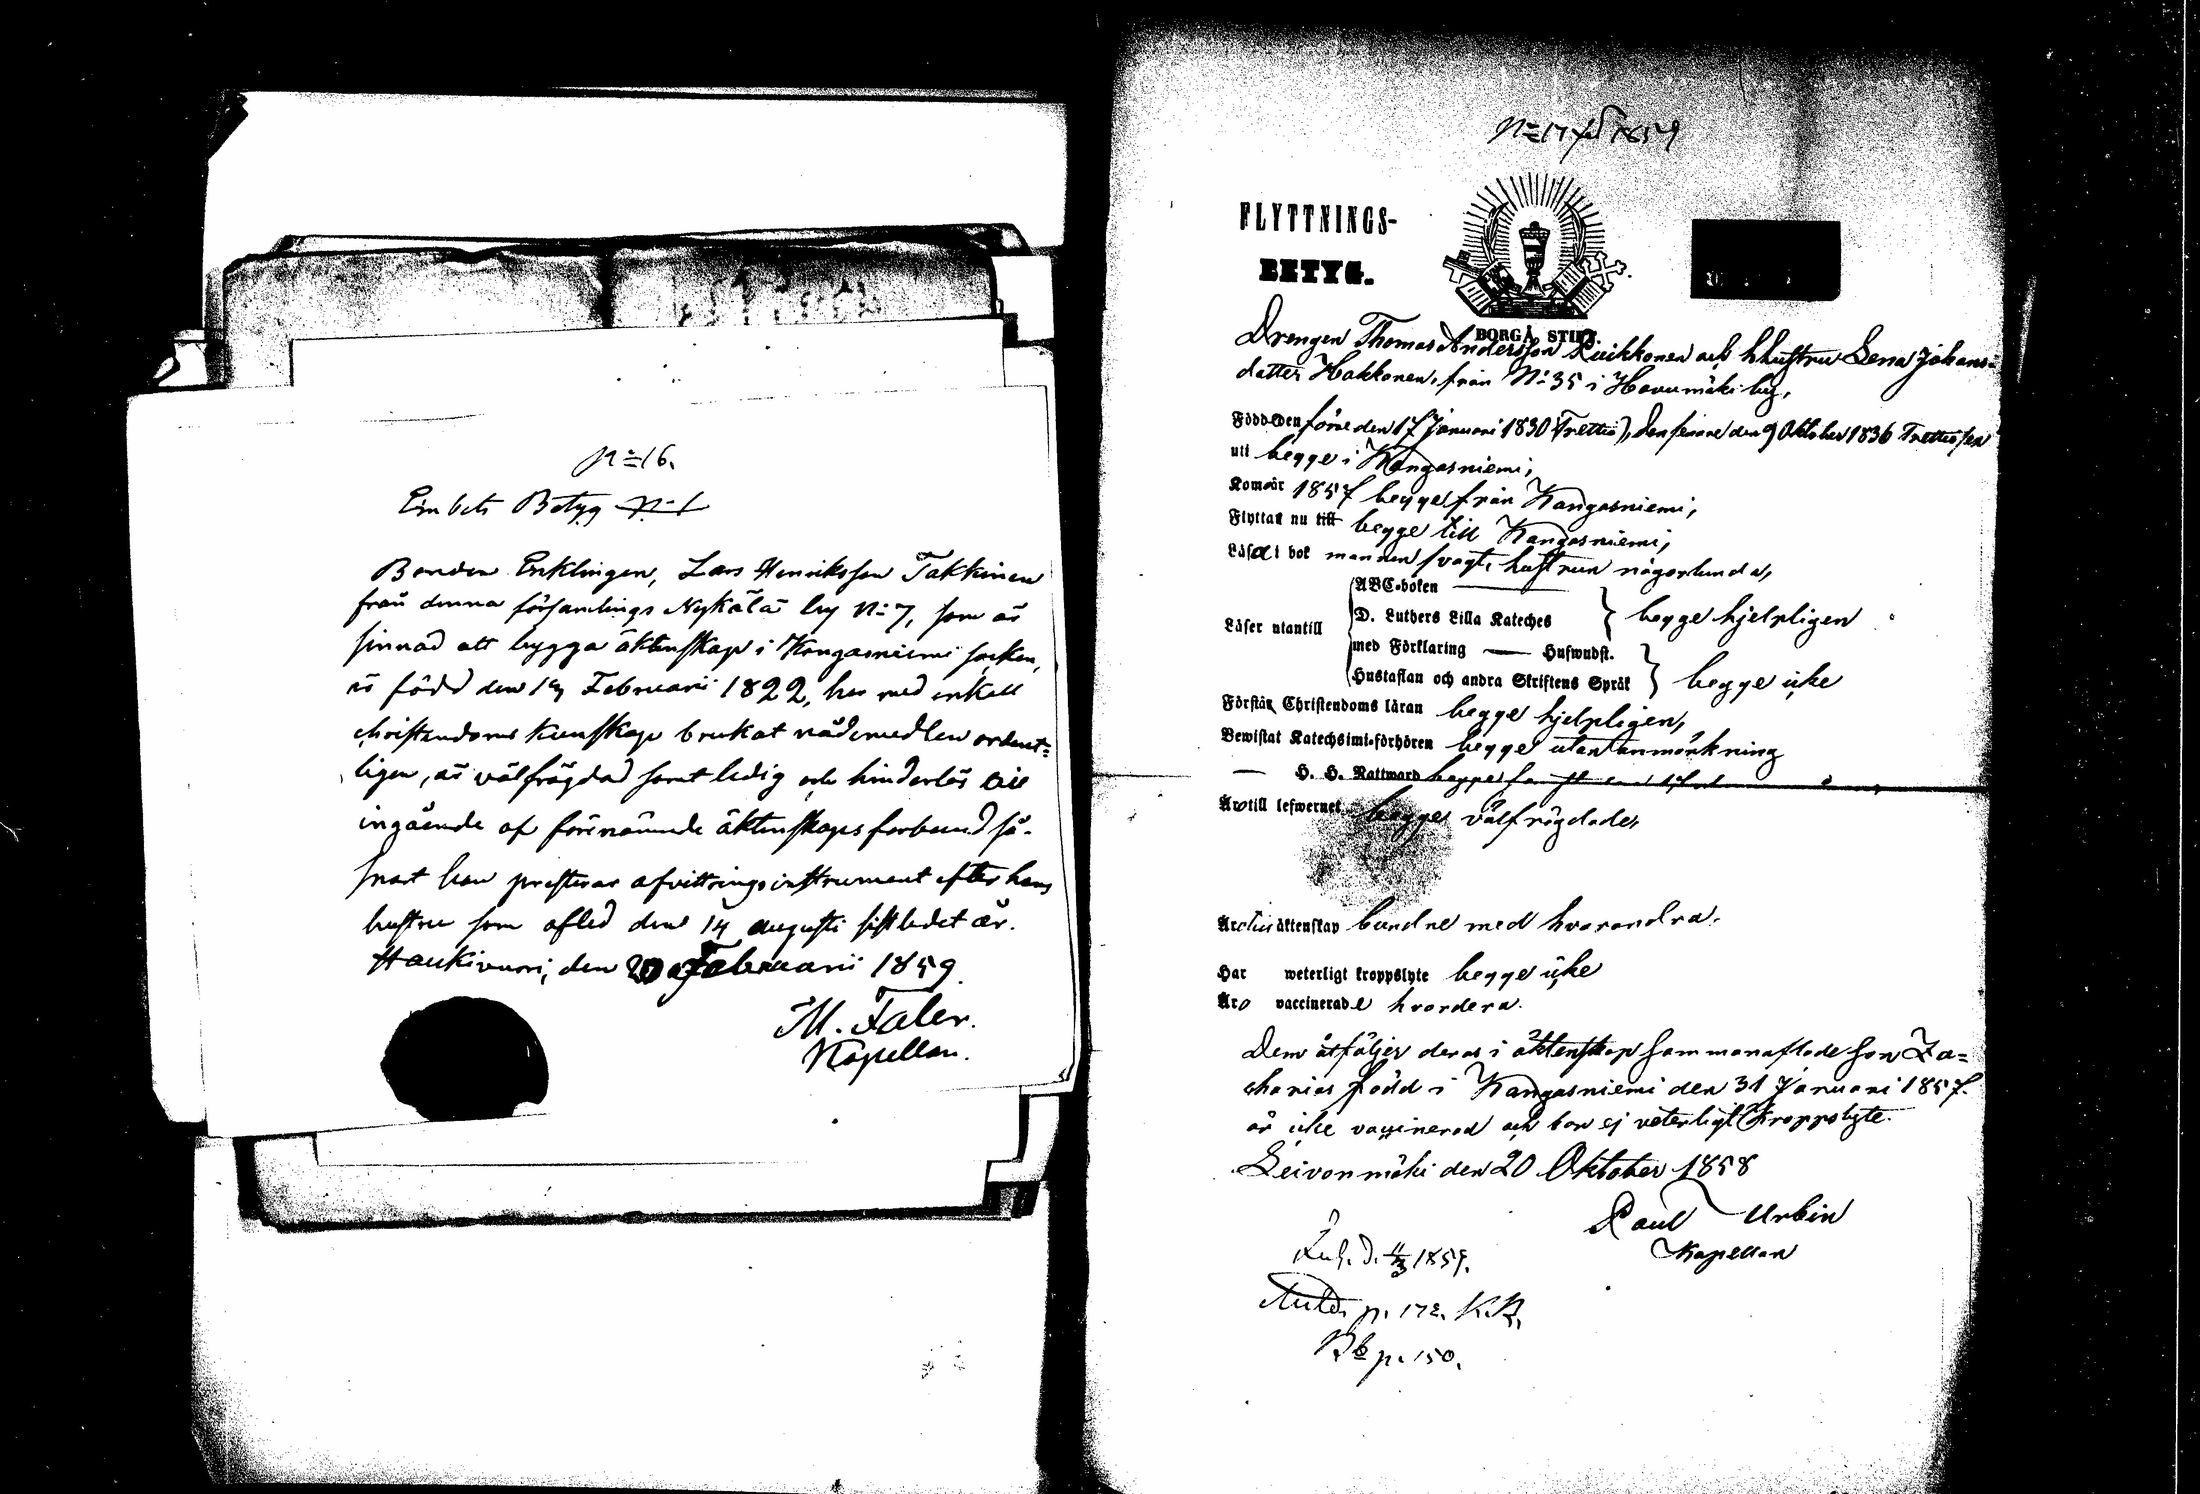 N:o 16.
Embets Betyg N:o 1
Bonden Enklingen, Lars Henriksson Takkinen
från denna församlings Nykälä by N:o 7, som är
sinnad att bygga äktenskap i Kangasniemi socken,
är född den Februarii 1822, har med enkell
christendoms kunskap brukat nådemedlen ordent-
ligen, är välfrägdad samt ledig och hinderlös till
ingående af förenämnde äktenskaps forbund så-
snart han presterar afvittrings instrument efter hans
hustru som afled den 14 augusti sistledet år.
Haukivuori, den 20 Februarii 1859.
M. Faler.
Kapellan.
N:o 17 1859
FLYTTNINGS-
BETYG.
BORGÅ STIFT.
Drengen Thomas Andersson Kuikkonen och h hustru Lena Johans-
datter Hokkonen, från N:o 35 i Havumäki by,
Född den förre den 17 Januari 1830 (Trettio), den senare den 9 Oktober 1836 Trettiosex
uti begge i Kangasniemi,
Kom år 1857 begge från Kangasniemi,
Flyttar nu till begge till Kangasniemi,
Läsa i bok mannen svagt, hustrun någorlunda,
ABC-boken
Läser utantill D. Luthers Lilla Kateches begge hjelpligen
med Förklaring — Huswudst.
Hustaflan och andra Skriftens Språk begge icke
Förstår Christendoms läran begge hjelpligen,
Bewistat Katechsimi-förhören begge utan anmärkning
— H. H. Nattward begge
Äro till lefwernet begge välfrägdade,
Äro till äktenskap bundne med hvarandra.
Har weterligt kroppslyte begge icke
Äro vaccinerade hvardera.
Dem åtföljer deras i äktenskap sammanaflade son Za-
charias född i Kangasniemi den 31 Januari 1857.
är icke vaccinerad och bar ej veterligt kroppslyte.
Leivonmäki den 20 Oktober 1858
Paul Urbin
Kapellan
d. 11/3 1859.
p. 172. K.B.
Bb p. 150.